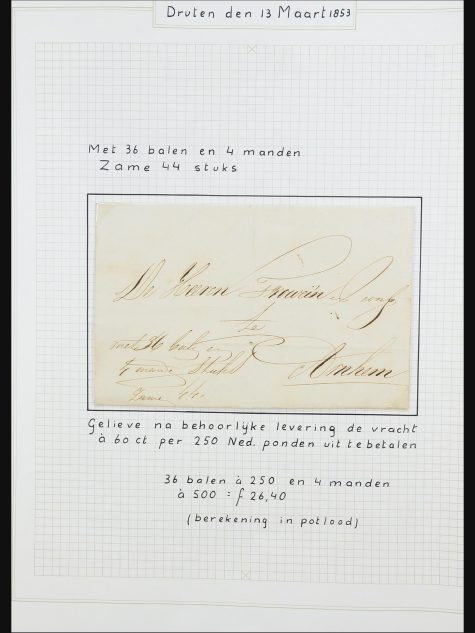 Druten den 13 Maart 1853
Met 36 balen en 4 manden
Zame 44 stuks
De Heeren Frowein en
te
Arnhem
met 36 bale en
4 mande
Zame 44
Gelieve na behoorlijke levering de vracht
à 60 ct per 250 Ned. ponden uit te betalen
36 balen à 250 en 4 manden
à 500 = f 26,40
(berekening in potlood)